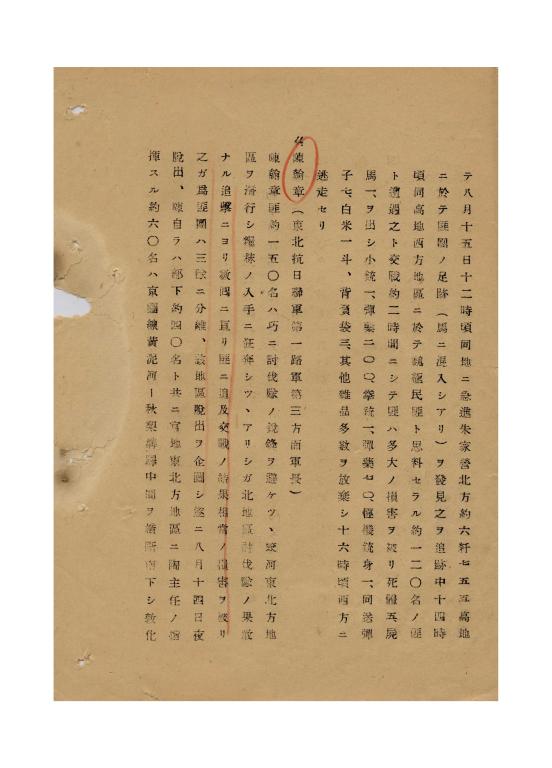 テ八月十五日十二時頃同地ニ急進朱家營北方約六粁七五五高地
ニ於テ匪團ノ足跡(馬ニ混入シアリ)ヲ發見之ヲ追跡中十四時
頃同高地西方地區ニ於テ魏極民匪ト思料セラル約一二〇名ノ匪
ト遭遇之ト交戰約二時間ニシテ匪ハ多大ノ損害ヲ被リ死體五、屍
馬一、ヲ出シ小銃一、彈藥二〇〇、拳銃一、彈藥七〇、輕機銃身一、同送彈
子七、白米一斗、背負袋三、其他雜品多數ヲ放棄シ十六時頃西方ニ
逃走セリ
陳翰章(東北抗日聯軍第一路軍第三方面軍長)
陳翰章匪約一五〇名ハ巧ニ討伐隊ノ銳鋒ヲ避ケツヽ東北方地
區ヲ潛行シ糧秣ノ入手ニ狂奔シツヽアリシガ北地區討伐隊ノ果敢
ナル追擊ニヨリ數回ニ亘リ匪ニ追及交戰ノ結果相當ノ損害ヲ被リ
之ガ爲匪團ハ三隊ニ分離、該地區脫出ヲ企圖シ遂ニ八月十四日夜
脫出、陳自ラハ部下約四〇名ト共ニ官地東北方地區ニ陶主任ノ指
揮スル約六〇名ハ京圖線黃泥河ー秋梨溝驛中間ヲ南下シ敦化